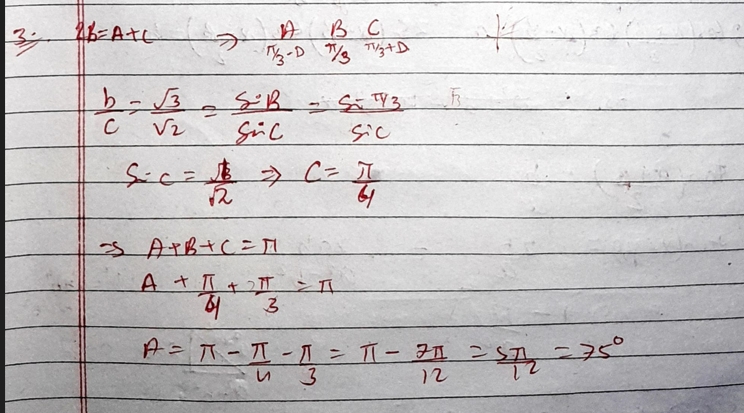 3. 2B=A+C ⇒ A B C
π/3-D π/3 π/3+D
b/c = √3/√2 = SinB/SinC = Sin π/3/SinC
Sin C = 1/√2 ⇒ C = π/4
⇒ A+B+C = π
A + π/4 + π/3 = π
A = π - π/4 - π/3 = π - 7π/12 = 5π/12 = 75°